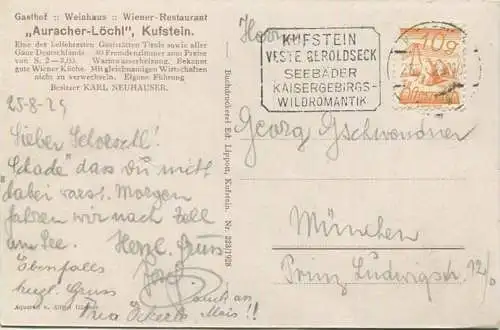 Gasthof :: Weinhaus :: Wiener-Restaurant
„Auracher-Löchl", Kufstein.
Eine der beliebtesten Gaststätten Tirols sowie aller
Gaue Deutschlands. 40 Fremdenzimmer zum Preise
von S. 2—3.05. Warmwasserheizung. Bekannt
gute Wiener Küche. Mit gleichnamigen Wirtschaften
nicht zu verwechseln. Eigene Führung
Besitzer KARL NEUHAUSER.
25-8-29
Lieber Schorschl!
„Schade" dass du nicht
"dabei warst. Morgen
fahren wir nach Zell
am See. Herzl. Gruss
Josef
Ebenfalls
herzl. Gruss
Gruß an
Mais!!
Aquarell v.
Buchdruckerei Ed. Lippott, Kufstein. Nr. 223/1928
Herrn
KUFSTEIN
VESTE GEROLDSECK
SEEBÄDER
KAISERGEBIRGS-
WILDROMANTIK
10g
Georg Gschwendner
München
Prinz Ludwigstr. 12/0